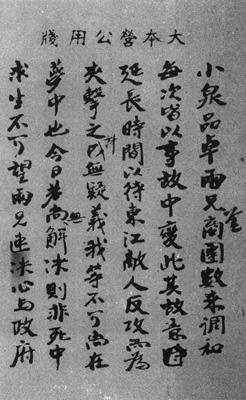 大本營公用牋
小泉品卓兩兄鑒商團數來調和
每次皆以事故中變此其故意
延長時間以待東江敵人反攻而為
夾擊之計無疑義我等不可尚在
夢中也今日若尚無解決則非死中
求生不可望兩兄速決心與政府